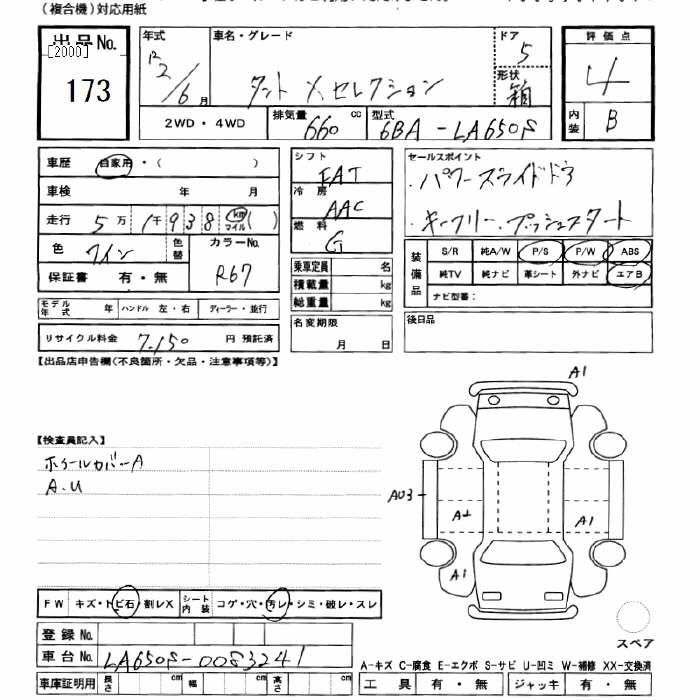 (複合機)対応用紙
出品No.
[2000]
173
年式
R2/6月
車名・グレード
タント Xセレクション
ドア
5
形状
箱
評価点
4
内装 B
2WD・4WD
排気量 660 cc
型式 6BA-LA650S
車歴 自家用・( )
車検 年 月
走行 5万1千938 km マイル( )
色 ワイン 色替
カラーNo. R67
保証書 有・無
モデル年式 年 ハンドル 左・右 ディーラー・並行
リサイクル料金 7,150 円 預託済
シフト FAT
冷房 AAC
燃料 G
乗車定員 名
積載量 kg
総重量 kg
名変期限
月 日
セールスポイント
・パワースライドドア
・キーフリー.プッシュスタート
装備品
S/R 純A/W P/S P/W ABS
純TV 純ナビ 革シート 外ナビ エアB
ナビ型番:
後日品
【出品店申告欄(不良箇所・欠品・注意事項等)】
【検査員記入】
ホイールカバーA
A.U
A1
AU3
A2
A1
A1
FW キズ・トビ石・割レX シート内装 コゲ・穴・汚レ・シミ・破レ・スレ
登録No.
車台No. LA650S-0083241
車庫証明用 長さ cm 幅 cm 高さ cm
スペア
A-キズ C-腐食 E-エクボ S-サビ U-凹ミ W-補修 XX-交換済
工具 有・無 ジャッキ 有・無